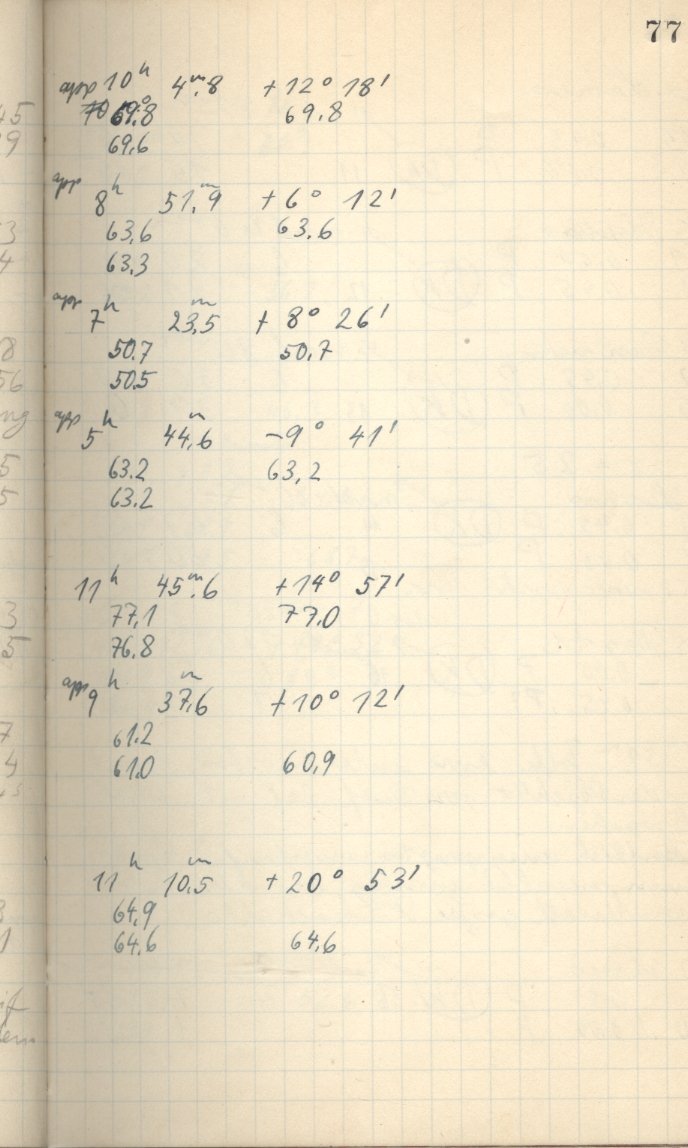 77
app 10h 4m.8 +12° 18'
69.8 69.8
69.6
app 8h 51.m9 +6° 12'
63.6 63.6
63.3
app 7h 23.m5 +8° 26'
50.7 50.7
50.5
app 5h 44.m6 -9° 41'
63.2 63.2
63.2
11h 45m.6 +14° 57'
77.1 77.0
76.8
app 9h 37.m6 +10° 12'
61.2
61.0 60.9
11h 10.m5 +20° 53'
64.9
64.6 64.6